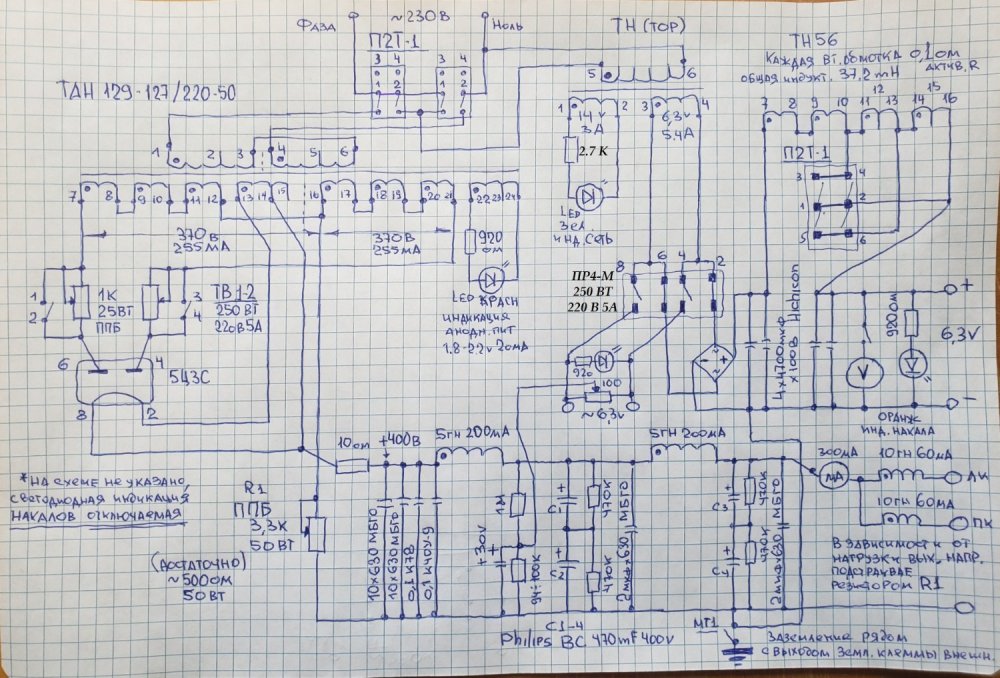 ФАЗА
~230В
НОЛЬ
П2Т-1
3 4 3 4
1 2 1 2
ТН (ТОР)
5 6
ТН56
КАЖДАЯ ВТ. ОБМОТКА 0,1 ОМ
АКТИВ. R
ОБЩАЯ ИНДУКТ. 37,2 mH
7 8 9 10 11 12 13 14 15 16
ТАН 129-127/220-50
1 2 3 4 5 6
1 2 3 4
14V
3A
6,3V
5.4A
2.7 К
LED
ЗЕЛ.
ИНД. СЕТЬ
П2Т-1
3 4
1 2
5 6
7 8 9 10 11 12 13 14 15 16 17 18 19 20 21 22 23 24
370В
255МА
370В
255МА
920
ОМ
LED КРАСН
ИНДИКАЦИЯ
АНОДН. ПИТ
1.8-2.2V 20МА
1
2
1К
25ВТ
ППБ
3
4
ТВ1-2
250 ВТ
220В5А
6 4
5Ц3С
8 2
8 6 4 2
ПР4-М
250 ВТ
220 В 5А
920
100
~6,3V
4x4700МКФ
x100В Hchicon
V
920ОМ
+
6,3V
-
ОРАНЖ
ИНД. НАКАЛА
* НА СХЕМЕ НЕ УКАЗАНО,
СВЕТОДИОДНАЯ ИНДИКАЦИЯ
НАКАЛОВ ОТКЛЮЧАЕМАЯ
10 ОМ
+400В
5ГН 200МА
5ГН 200МА
300МА
МА
10ГН 60МА
ЛК
10ГН
60МА
ПК
R1
ППБ
3,3К
50ВТ
(ДОСТАТОЧНО)
~500ОМ
50ВТ
10x630 МБГО
10x630МБГО
0,1 К78
0,1 К40У-9
1М
+30V
94÷100К
C1
C2
470К
470К
2МКФx630 МБГО
C3
C4
470К
470К
2МКФx630 МБГО
В ЗАВИСИМОСТИ ОТ
НАГРУЗКИ ВЫХ. НАПР.
ПОДСТРАИВАЕ
РЕЗИСТОРОМ R1
C1-4
Philips BC 470mF 400V
МТ1
ЗАЗЕМЛЕНИЕ РЯДОМ
С ВЫХОДОМ ЗЕМЛ. КЛЕММЫ ВНЕШН.